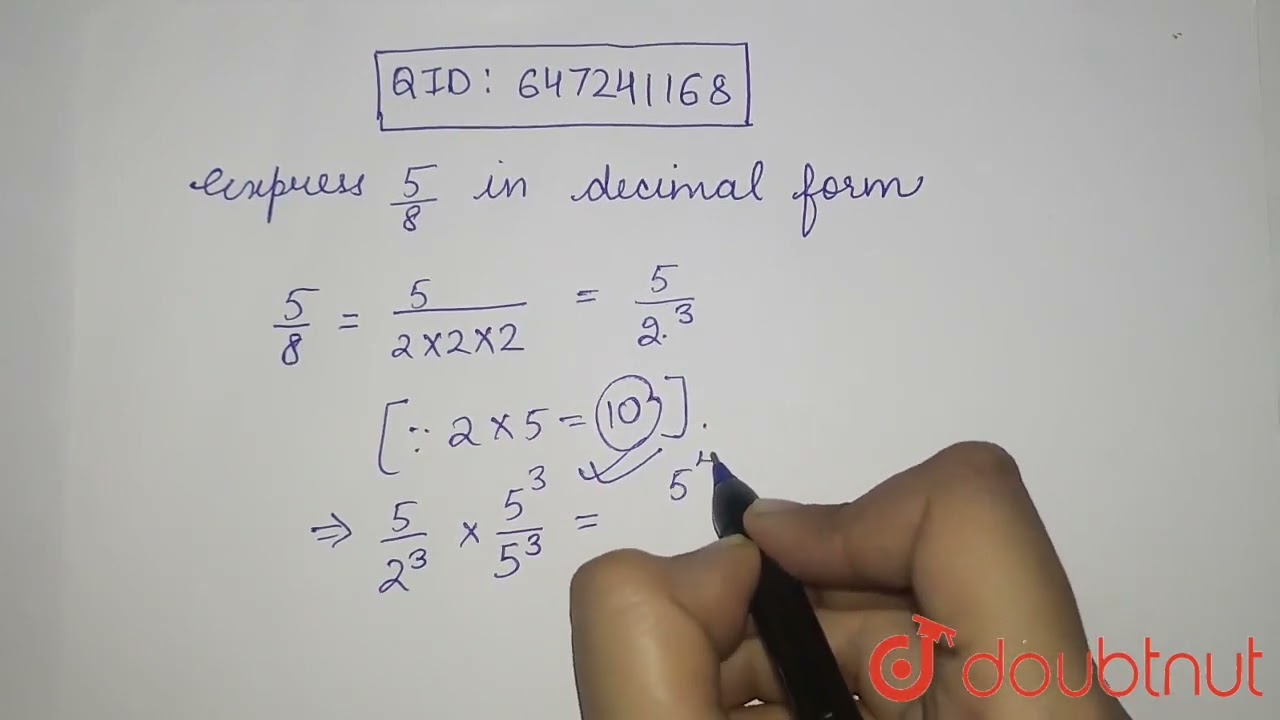 QID: 647241168
express 5/8 in decimal form
5/8 = 5/2×2×2 = 5/2.³
[∵ 2×5 = 10].
⇒ 5/2³ × 5³/5³ = 5⁴
doubtnut